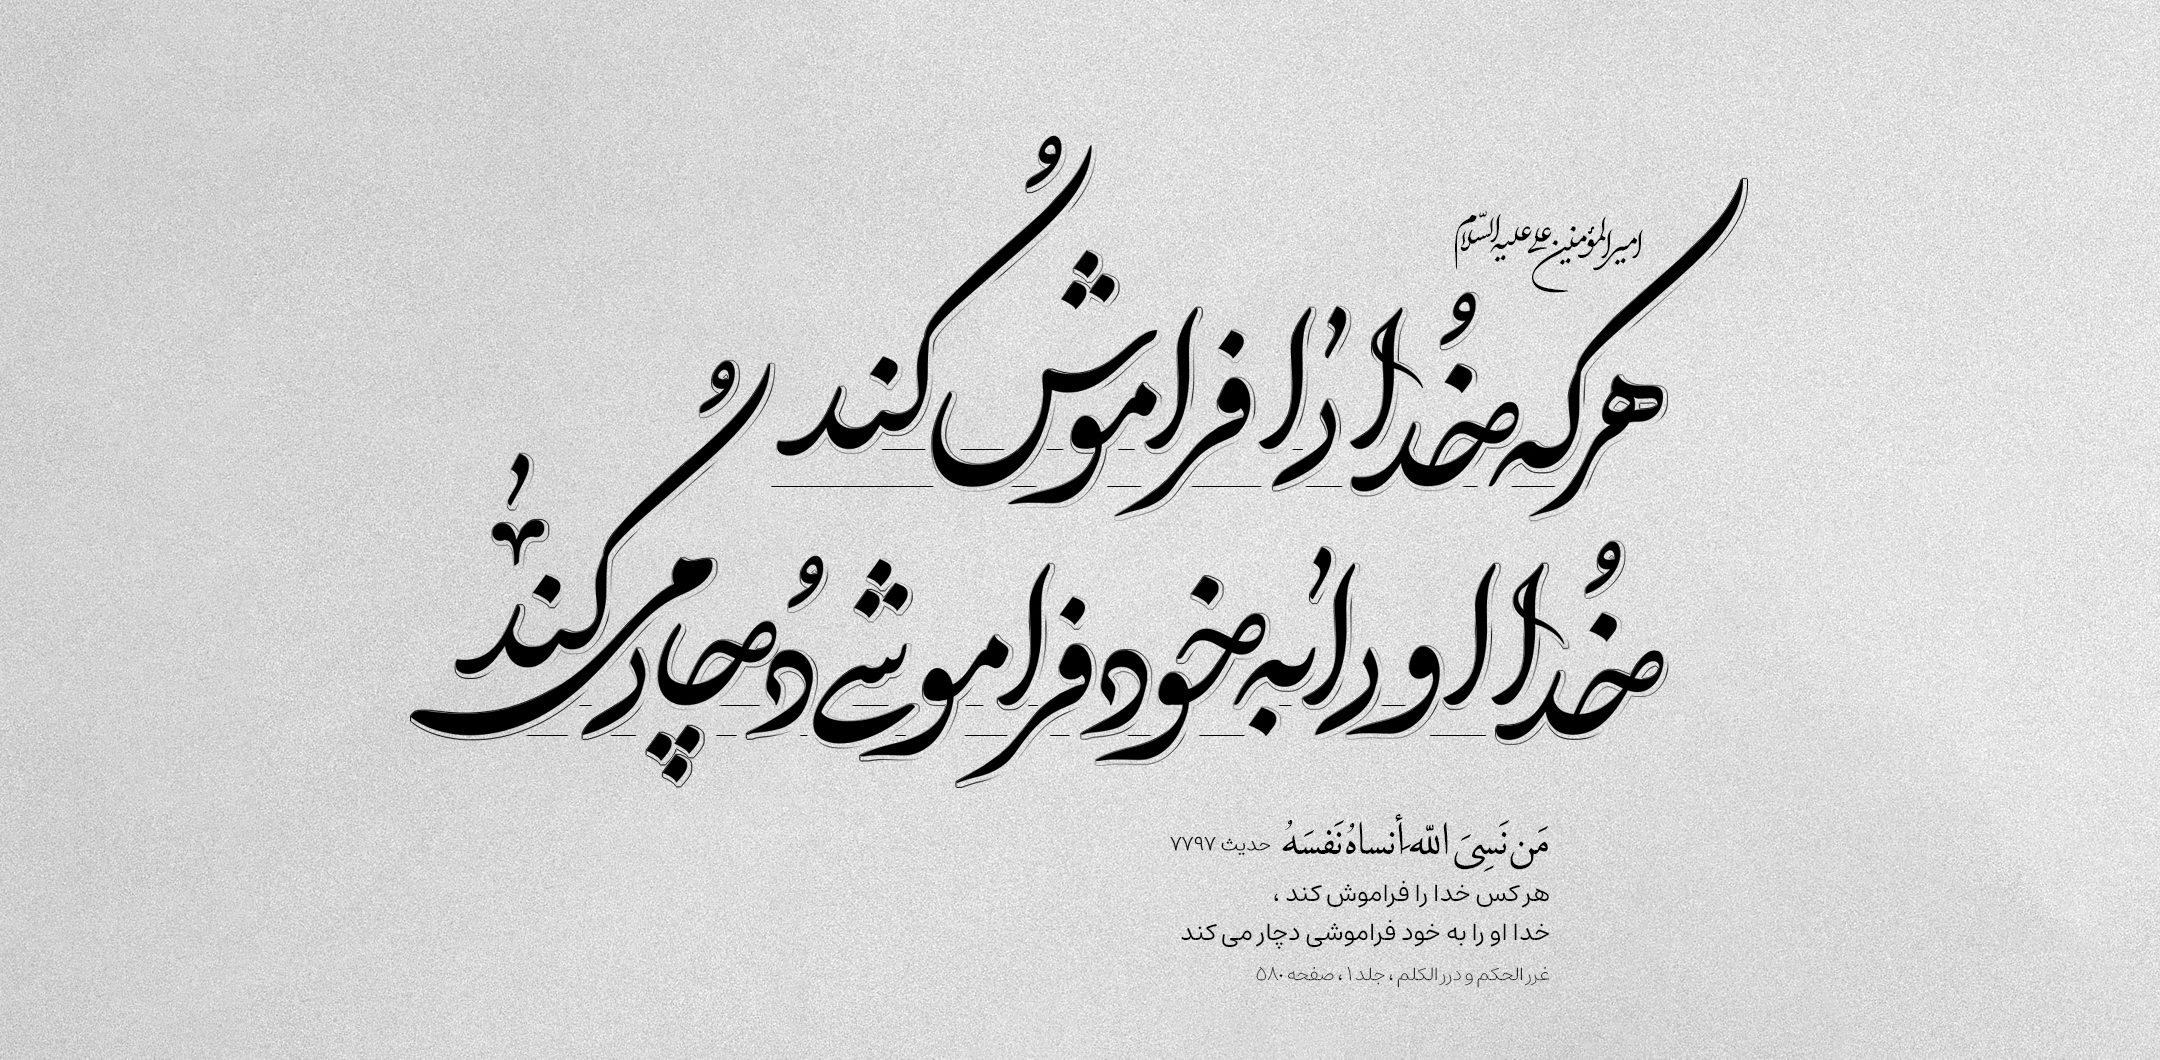 امیرالمؤمنین علی علیه السّلام
هر که خُدا را فراموش کند
خُدا او را به خود فراموشی دُچار می کند
مَن نَسِیَ اللّهَ أنساهُ نَفسَهُ حدیث ۷۷۹۷
هر کس خدا را فراموش کند ،
خدا او را به خود فراموشی دچار می کند
غرر الحکم و درر الکلم ، جلد ۱ ، صفحه ۵۸۰